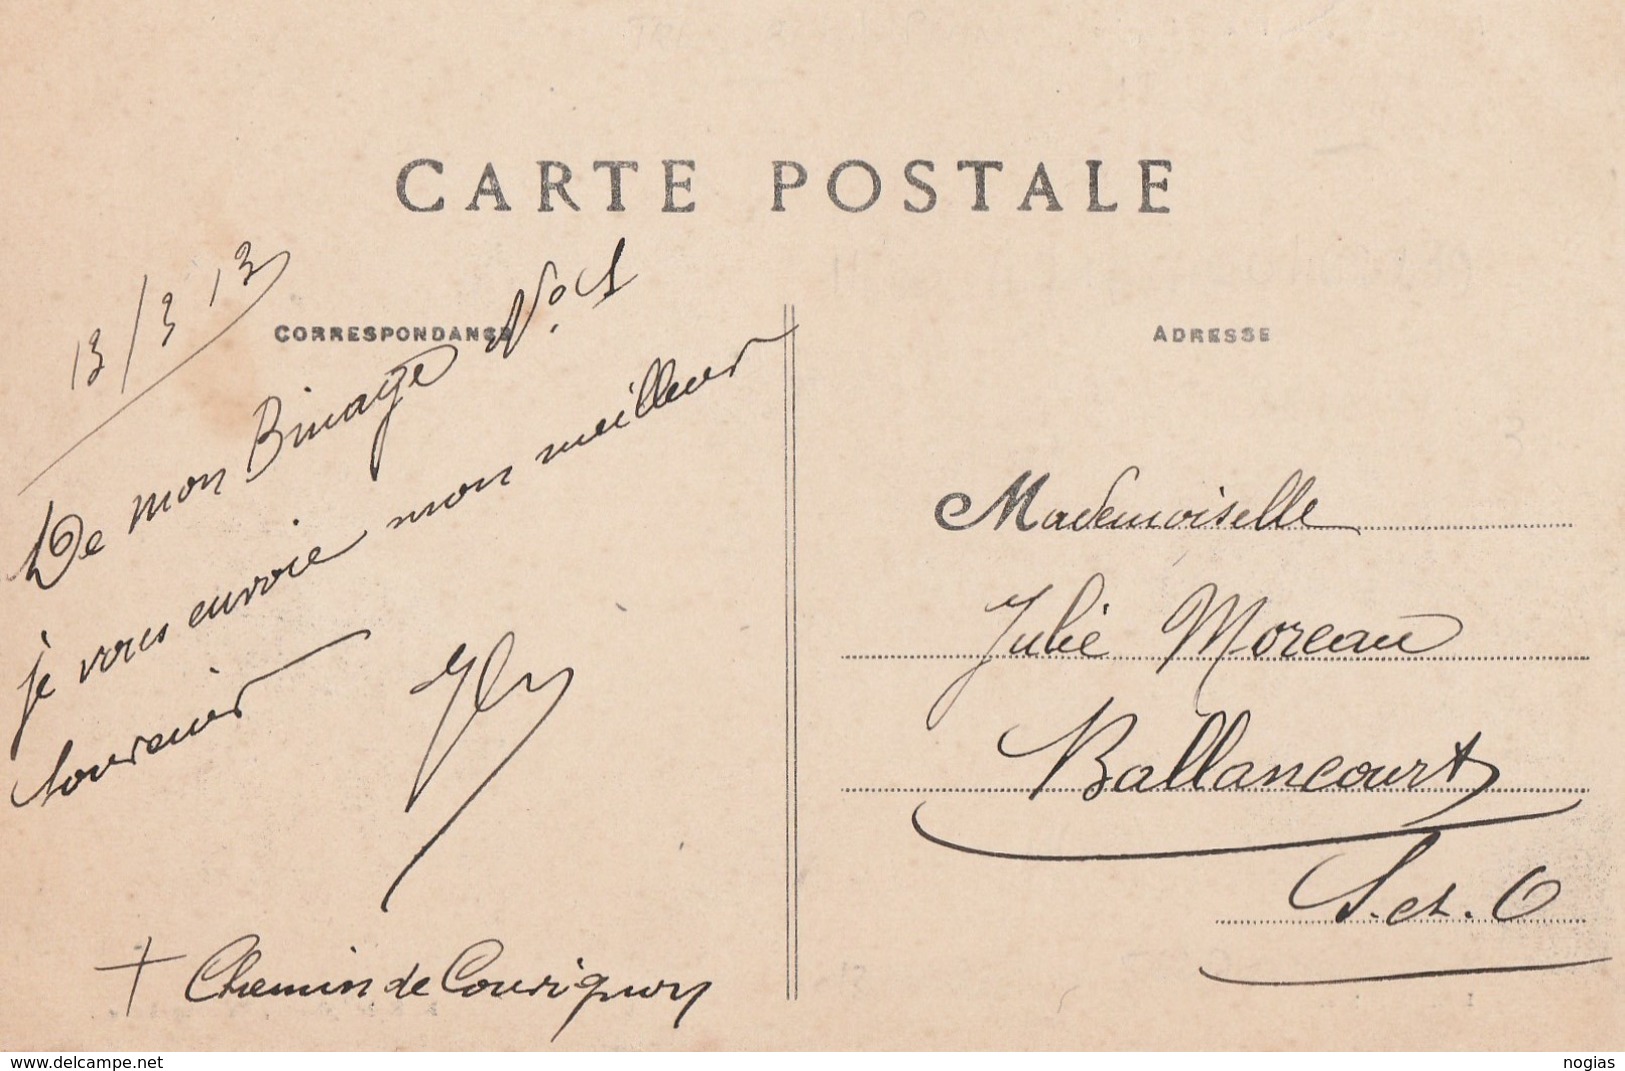 CARTE POSTALE
CORRESPONDANCE
ADRESSE
13/3 13
De mon Binage No 1
je vous envoie mon meilleur
souvenir
+ Chemin de
Mademoiselle
Julie Moreau
Ballancourt
S. et. O
www.delcampe.net
nogias